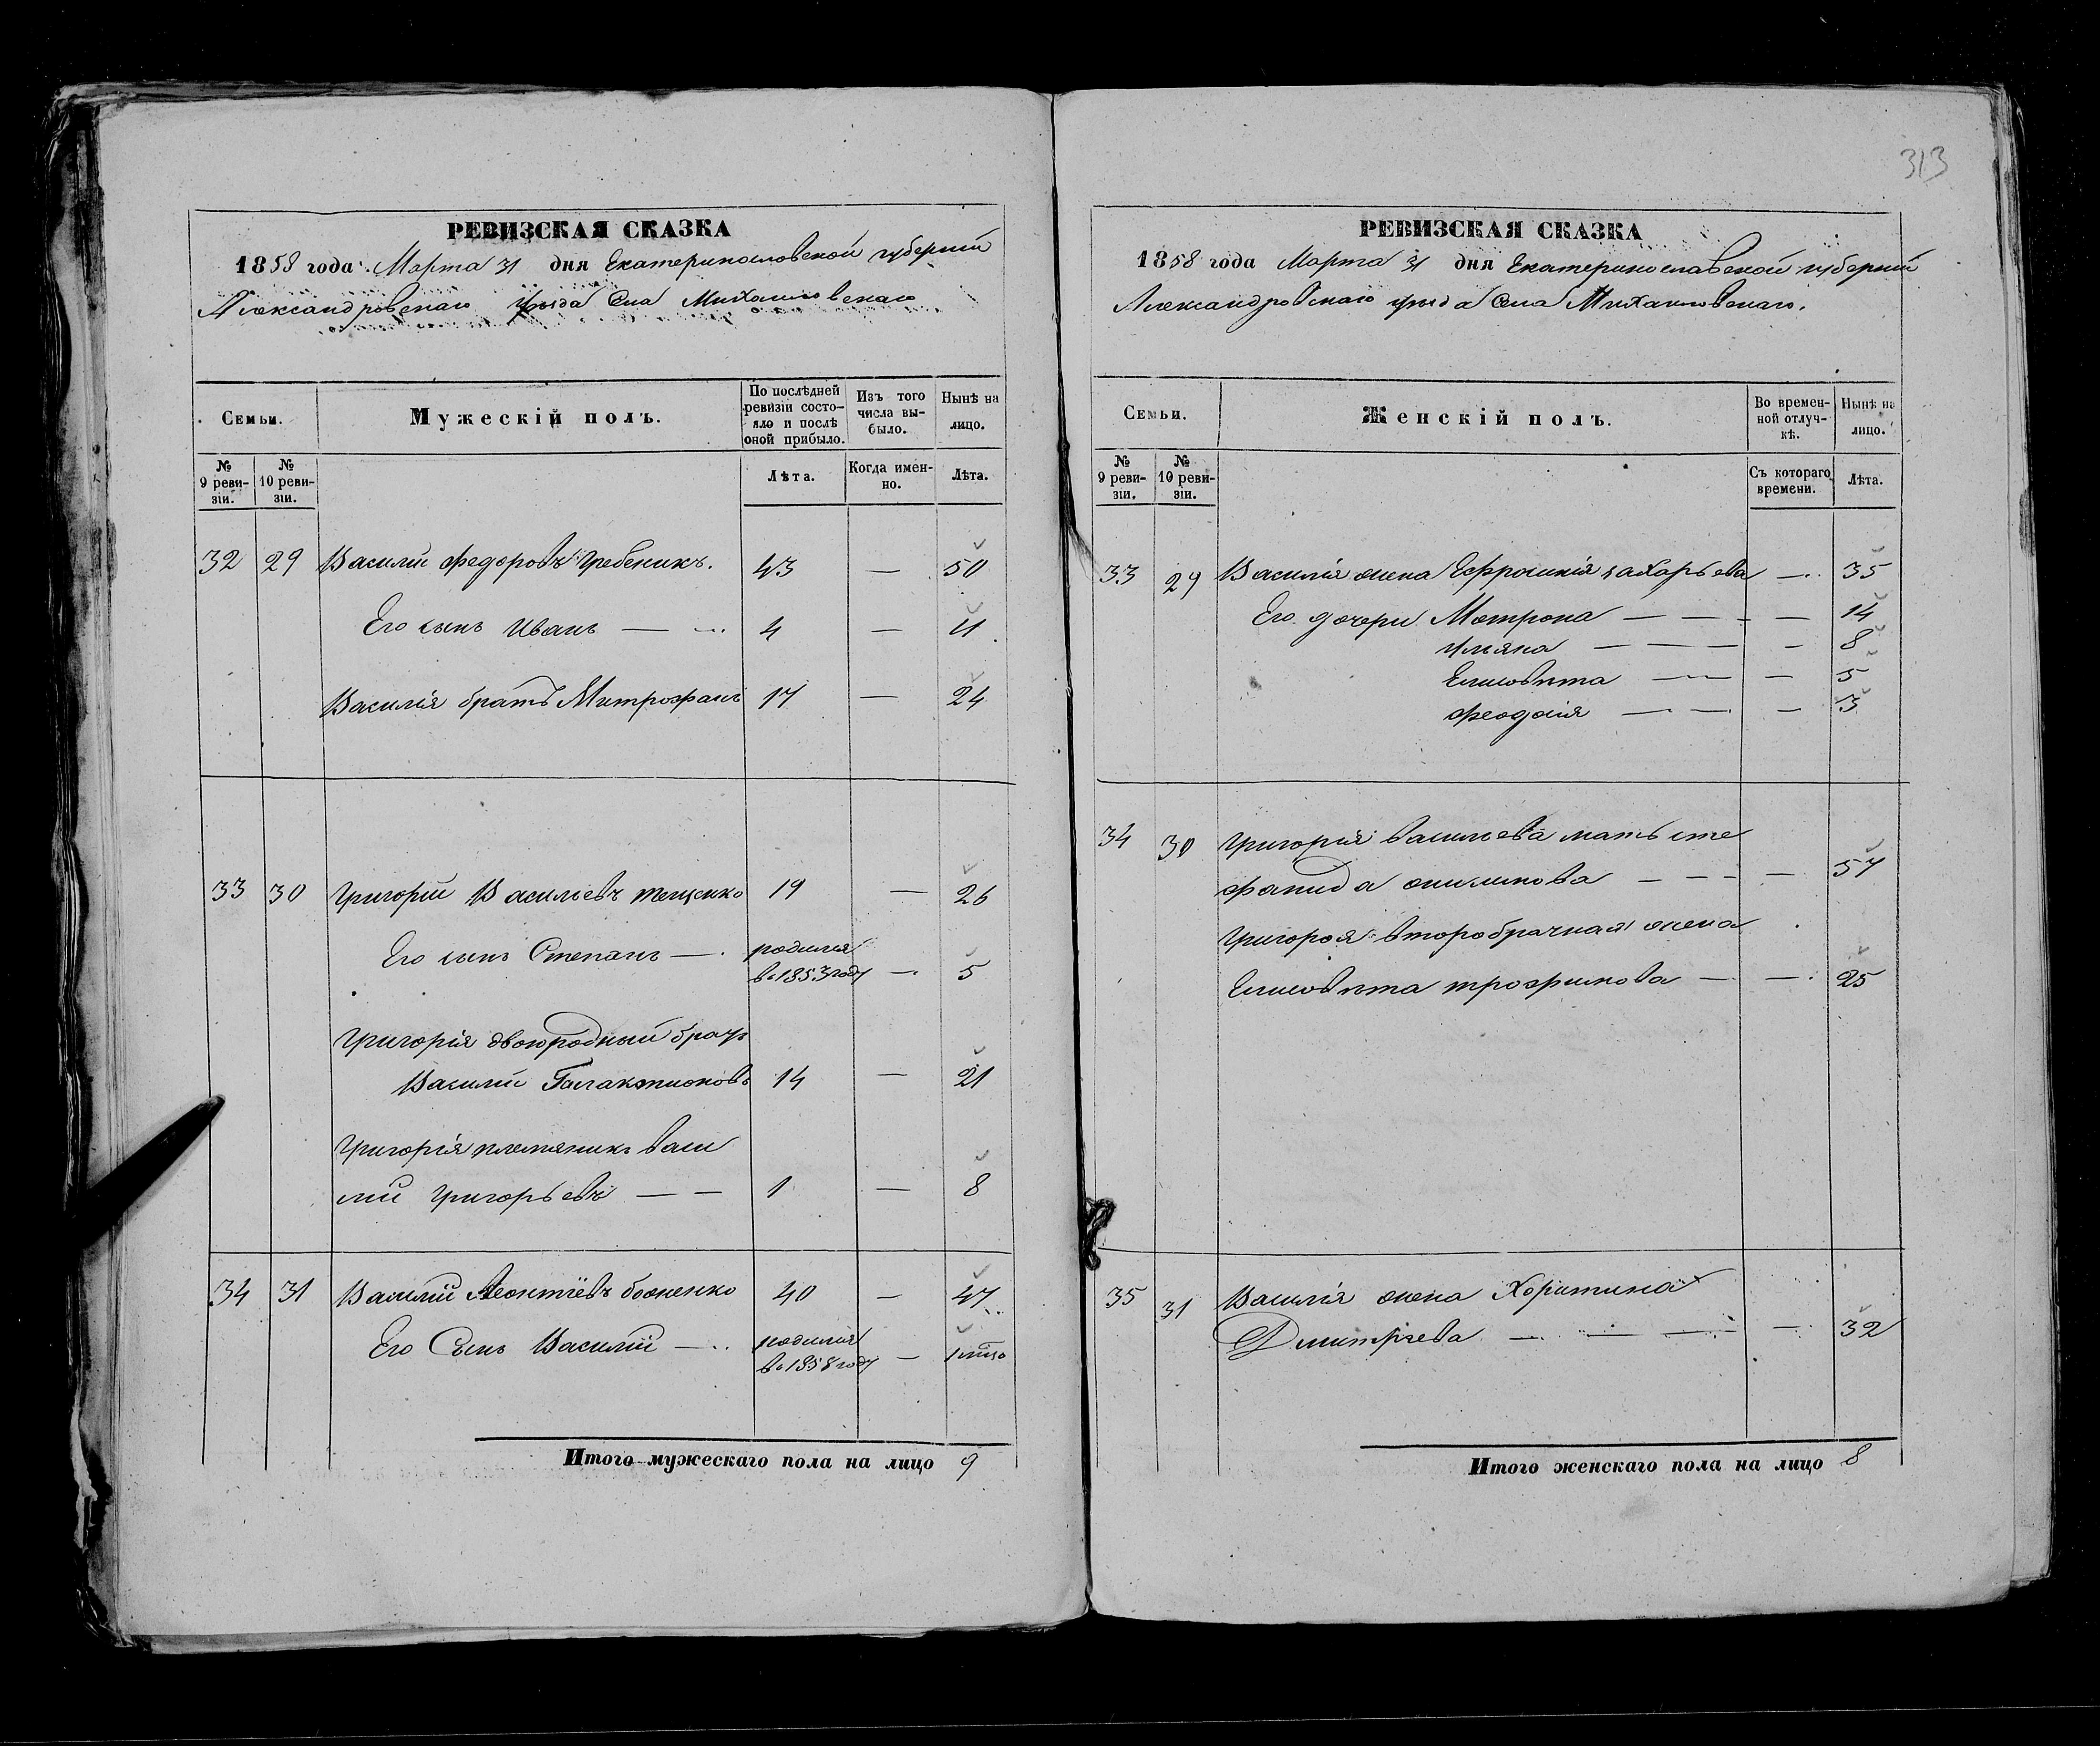 313
РЕВИЗСКАЯ СКАЗКА
1858 года Марта 31 дня Екатеринославской губерніи
Александровскаго уезда Села Михайловскаго
Семьи. Мужескій полъ. По послѣдней ревизіи состояло и послѣ оной прибыло. Изъ того числа выбыло. Нынѣ на лицо.
№ 9 ревизіи. № 10 ревизіи. Лѣта. Когда именно. Лѣта.
32 29 Василій Федоровъ Гребеникъ. 43 — 50
Его сынъ Иванъ — 4 — 11
Василія братъ Митрофанъ 17 — 24
33 30 Григорій Васильевъ тещенко 19 — 26
Его сынъ Степанъ — родился в 1853 году — 5
Григорія двоюродный братъ
Василій Галактионовъ 14 — 21
Григорія племяникъ Васи
лій Григорьевъ — — 1 — 8
34 31 Василий Леонтіевъ боженко 40 — 47
Его Сынъ Василий — родился в 1858 году —
Итого мужескаго пола на лицо 9
РЕВИЗСКАЯ СКАЗКА
1858 года Марта 31 дня Екатеринославской губерніи
Александровскаго уезда Села Михайловскаго.
Семьи. Женскій полъ. Во временной отлучкѣ. Нынѣ на лицо.
№ 9 ревизіи. № 10 ревизіи. Съ котораго времени. Лѣта.
33 29 Василія жена Ефросинія захарьева — 35
Его дочери Мотрона — — — — 14
Ульяна — — — — 8
Елисовѣта — — — 5
Феодосія — — — 3
34 30 Григорія васильева мать сте
фанида онисимова — — — — 57
Григорія второбрачная жена
Елисовѣта трофимова — — 25
35 31 Василія жена Харитина
Дмитріева — — — — 32
Итого женскаго пола на лицо 8